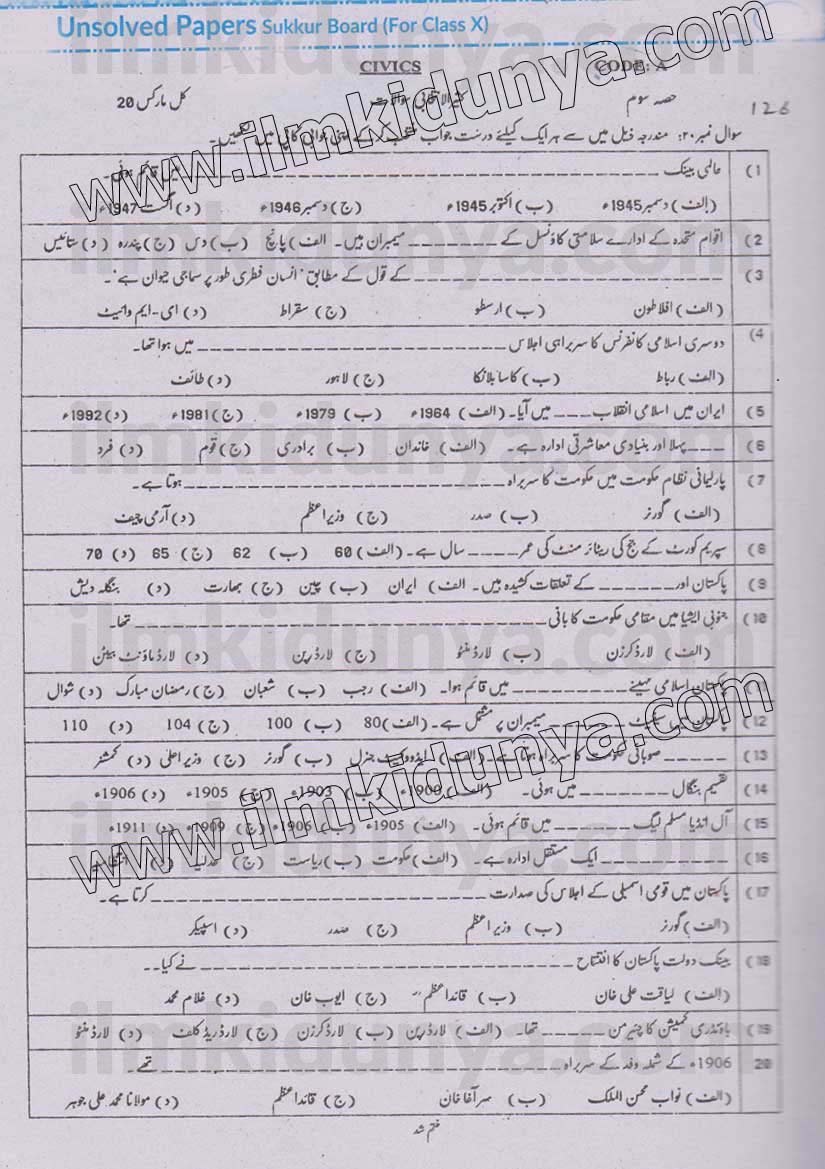 Unsolved Papers Sukkur Board (For Class X)
CIVICS CODE: A
حصہ سوم کثیرالانتخابی سوالات کل مارکس 20
126
سوال نمبر ۲۰: مندرجہ ذیل میں سے ہر ایک کیلئے درست جواب منتخب کر کے اپنی جوابی کاپی میں لکھیں۔
(1 عالمی بینک ______ میں قائم ہوئی۔
(الف) دسمبر 1945ء (ب) اکتوبر 1945ء (ج) دسمبر 1946ء (د) اگست 1947ء
(2 اقوام متحدہ کے ادارے سلامتی کاؤنسل کے ______ میمبران ہیں۔ الف) پانچ (ب) دس (ج) پندرہ (د) ستائیس
(3 ______ کے قول کے مطابق 'انسان فطری طور پر سماجی حیوان ہے'۔
(الف) افلاطون (ب) ارسطو (ج) سقراط (د) ای-ایم وائیٹ
(4 دوسری اسلامی کانفرنس کا سربراہی اجلاس ______ میں ہوا تھا۔
(الف) رباط (ب) کاسابلانکا (ج) لاہور (د) طائف
(5 ایران میں اسلامی انقلاب ___ میں آیا۔ (الف) 1964ء (ب) 1979ء (ج) 1981ء (د) 1992ء
(6 ___ پہلا اور بنیادی معاشرتی ادارہ ہے۔ (الف) خاندان (ب) برادری (ج) قوم (د) فرد
(7 پارلیمانی نظام حکومت میں حکومت کا سربراہ ______ ہوتا ہے۔
(الف) گورنر (ب) صدر (ج) وزیراعظم (د) آرمی چیف
(8 سپریم کورٹ کے جج کی ریٹائرمنٹ کی عمر ____ سال ہے۔ (الف) 60 (ب) 62 (ج) 65 (د) 70
(9 پاکستان اور ______ کے تعلقات کشیدہ ہیں۔ الف) ایران (ب) چین (ج) بھارت (د) بنگلہ دیش
(10 جنوبی ایشیا میں مقامی حکومت کا بانی ______ تھا۔
(الف) لارڈ کرزن (ب) لارڈ منٹو (ج) لارڈ رپن (د) لارڈ ماؤنٹ بیٹن
پاکستان اسلامی مہینے ______ میں قائم ہوا۔ (الف) رجب (ب) شعبان (ج) رمضان مبارک (د) شوال
(12 پاکستان میں سینیٹ ______ میمبران پر مشتمل ہے۔ (الف) 80 (ب) 100 (ج) 104 (د) 110
(13 _____ صوبائی حکومت کا سربراہ ہوتا ہے۔ (الف) ایڈووکیٹ جنرل (ب) گورنر (ج) وزیراعلیٰ (د) کمشنر
(14 تقسیم بنگال ______ میں ہوئی۔ (الف) 1900ء (ب) 1903ء (ج) 1905ء (د) 1906ء
(15 آل انڈیا مسلم لیگ ______ میں قائم ہوئی۔ (الف) 1905ء (ب) 1906ء (ج) 1909ء (د) 1911ء
(16 ______ ایک مستقل ادارہ ہے۔ (الف) حکومت (ب) ریاست (ج) عدلیہ (د) انتظامیہ
(17 پاکستان میں قومی اسمبلی کے اجلاس کی صدارت ______ کرتا ہے۔
(الف) گورنر (ب) وزیراعظم (ج) صدر (د) اسپیکر
(18 بینک دولت پاکستان کا افتتاح ______ نے کیا۔۔
(الف) لیاقت علی خان (ب) قائداعظم (ج) ایوب خان (د) غلام محمد
(19 باؤنڈری کمیشن کا چیئرمین ______ تھا۔ (الف) لارڈ رپن (ب) لارڈ کرزن (ج) لارڈ ریڈ کلف (د) لارڈ منٹو
20 1906ء کے شملہ وفد کے سربراہ ______ تھے۔
(الف) نواب محسن الملک (ب) سر آغا خان (ج) قائداعظم (د) مولانا محمد علی جوہر
ختم شد
www.ilmkidunya.com
www.ilmkidunya.com
ilmkidunya.com
ilmkidunya.com
ilmkidunya.com
ilmkidunya.com
ilmkidunya.com
ilmkidunya.com